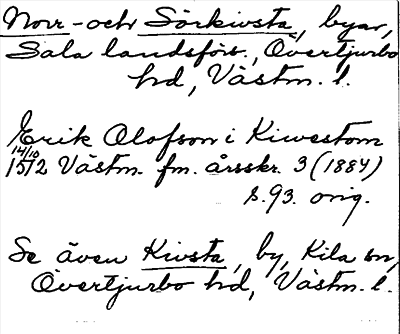 Norr- och Sörkivsta, byar,
Sala landsförs., Övertjurbo
hd, Västm. l.
Erik Olofson i Kiwestom
14/10
1512 Västm. fm. årsskr. 3 (1884)
s. 93. orig.
Se även Kivsta, by, Kila sn,
Övertjurbo hd, Västm. l.